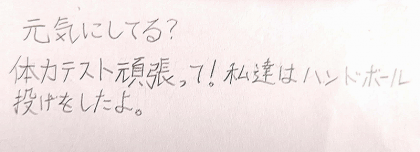 元気にしてる？
体力テスト頑張って！私達はハンドボール
投げをしたよ。